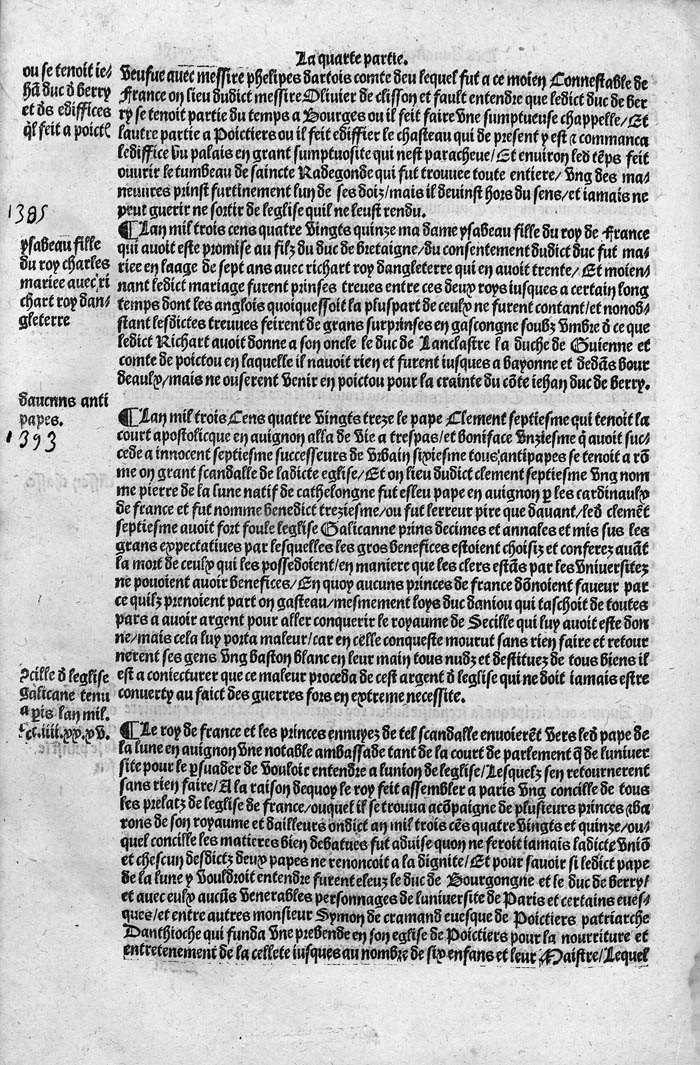 La quarte partie.
ou se tenoit ie-
hã duc d̃ berry
et d̃s ediffices
q̃l feit a poictˀ
Veufue auec messire phelipes dartois comte deu lequel fut a ce moien Connestable de
France on lieu dudict messire Oliuier de clisson et fault entendre que ledict duc de ber
ry se tenoit partie du temps a Bourges ou il feit faire Vne sumptueuse chappelle/ Et
lautre partie a Poictiers ou il feit ediffier le chasteau qui de present y est ⁊ commanca
lediffice du palais en grant sumptuosite qui nest paracheue/ Et enuiron led tẽps feit
ouurir le tumbeau de saincte Radegonde qui fut trouuee toute entiere/ Vng des ma-
neuures prinst furtinement lun de ses doiz/ mais il deuinst hors du sens/ et iamais ne
peut guerir ne sortir de leglise quil ne leust rendu.
1385
ysabeau fille
du roy charles
mariee auec ri
chart roy dan-
gleterre
¶ Lan mil trois cens quatre Vingts quinze ma dame ysabeau fille du roy de France
qui auoit este promise au filz du duc de bretaigne/ du consentement dudict duc fut ma-
riee en laage de sept ans auec richart roy dangleterre qui en auoit trente/ Et moien-
nant ledict mariage furent prinses treues entre ces deux roys iusques a certain long
temps dont les anglois quoiquessoit la pluspart de ceulx ne furent contant/ et nonob-
stant lesdictes treuues feirent de grans surprinses en gascongne soubz Vmbre d̃ ce que
ledict Richart auoit donne a son oncle le duc de Lanclastre la duche de Guienne et
comte de poictou en laquelle il nauoit rien et furent iusques a bayonne et dedãs bour
deaulx/ mais ne ouserent Venir en poictou pour la crainte du cõte iehan duc de berry.
dauenns anti
papes.
1393
¶ Lan mil trois Cens quatre Vingts treze le pape Clement septiesme qui tenoit la
court apostolicque en auignon alla de Vie a trespas/ et boniface Vnziesme q̃ auoit suc-
cede a innocent septiesme successeurs de Vrbain sixiesme tous antipapes se tenoit a rõ
me on grant scandalle de ladicte eglise/ Et on lieu dudict clement septiesme Vng nom
me pierre de la lune natif de cathelongne fut esleu pape en auignon p̱ les cardinaulx
de france et fut nomme benedict treziesme/ ou fut lerreur pire que dauant/ led clemẽt
septiesme auoit fort foule leglise Galicanne prins decimes et annales et mis sus les
grans expectatiues par lesquelles les gros benefices estoient choisiz et conferez auãt
la mort de ceulx qui les possedoient/ en maniere que les clers estãs par les Vniuersitez
ne pouoient auoir benefices/ En quoy aucuns princes de france dõnoient faueur par
ce quilz prenoient part on gasteau/ mesmement loys duc daniou qui taschoit de toutes
pars a auoir argent pour aller conquerir le royaume de Secille qui luy auoit este don
ne/ mais cela luy porta maleur/ car en celle conqueste mourut sans rien faire et retour
nerent ses gens Vng baston blanc en leur main tous nudz et destituez de tous biens il
est a coniecturer que ce maleur proceda de cest argent d̃ leglise qui ne doit iamais estre
conuerty au faict des guerres fors en extreme necessite.
cille d̃ leglise
galicane tenu
a p̱is lan mil.
iiii.xx.xv.
¶ Le roy de france et les princes ennuyez de tel scandalle enuoierẽt Vers led pape de
la lune en auignon Vne notable ambassade tant de la court de parlement q̃ de luniuer
site pour le p̱suader de Vouloir entendre a lunion de leglise/ Lesquelz sen retournerent
sans rien faire/ A la raison dequoy le roy feit assembler a paris Vng concille de tous
les prelatz de leglise de france/ ouquel il se trouua acõpaigne de plusieurs princes ⁊ ba
rons de son royaume et dailleurs ondict an mil trois cẽs quatre Vingts et quinze/ ou-
quel concille les matieres bien debatues fut aduise quon ne feroit iamais ladicte Vniõ
et chescun desdictz deux papes ne renoncoit a la dignite/ Et pour sauoir si ledict pape
de la lune y Vouldroit entendre furent eleuz le duc de Bourgongne et le duc de berry/
et auec eulx aucũs Venerables personnages de luniuersite de Paris et certains eues-
ques/ et entre autres monsieur Symon de cramand euesque de Poictiers patriarche
Danthioche qui funda Vne prebende en son eglise de Poictiers pour la nourriture et
entretenement de la cellete iusques au nombre de six enfans et leur Maistre/ Lequel